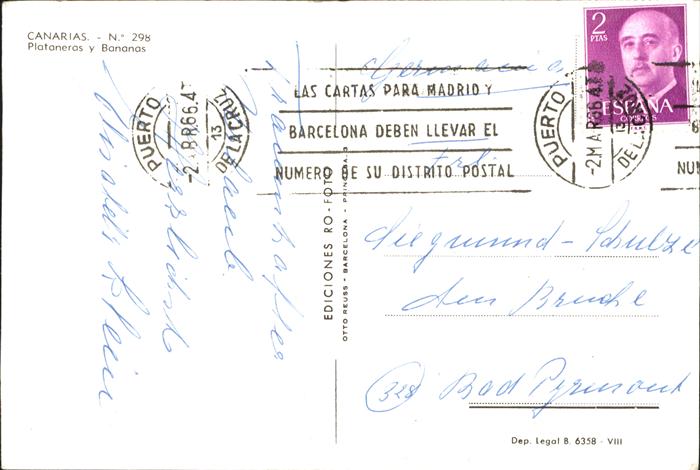 CANARIAS. - N.° 298
Plataneras y Bananas
traumhaften
Urlaub
Herzlichst
PUERTO
DE LA CRUZ
13
LAS CARTAS PARA MADRID Y
BARCELONA DEBEN LLEVAR EL
NUMERO DE SU DISTRITO POSTAL
PUERTO
-2MAR66.4
13
DE LA
NUM
2
PTAS
ESPAÑA
CORREOS
EDICIONES RO-FOTO
OTTO REUSS - BARCELONA - PRINCESA, 3
Germania
Siegmund-Schulze
Den Bruche
(328) Bad Pyrmont
Dep. Legal B. 6358 - VIII